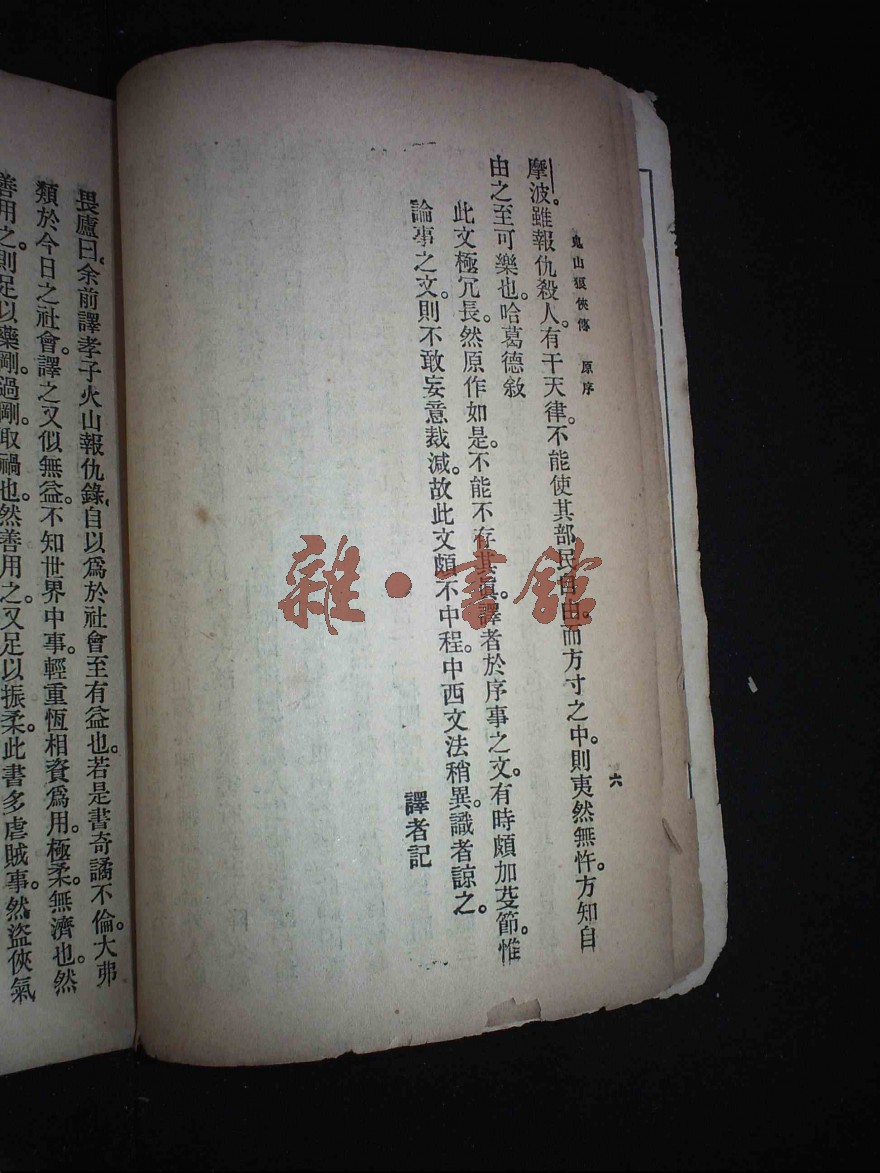 鬼山狼俠傳 原序
六
摩波。雖報仇殺人。有干天律。不能使其部民自由。而方寸之中。則夷然無忤。方知自
由之至可樂也。哈葛德敘
此文極冗長。然原作如是。不能不存其眞。譯者於序事之文。有時頗加芟節。惟
論事之文。則不敢妄意裁減。故此文頗不中程。中西文法稍異。識者諒之。
譯者記
畏廬曰。余前譯孝子火山報仇錄。自以爲於社會至有益也。若是書奇譎不倫。大弗
類於今日之社會。譯之又似無益。不知世界中事。輕重恆相資爲用。極柔無濟也。然
善用之。則足以藥剛。過剛取禍也。然善用之。又足以振柔。此書多虐賊事。然盜俠氣
雜·書館